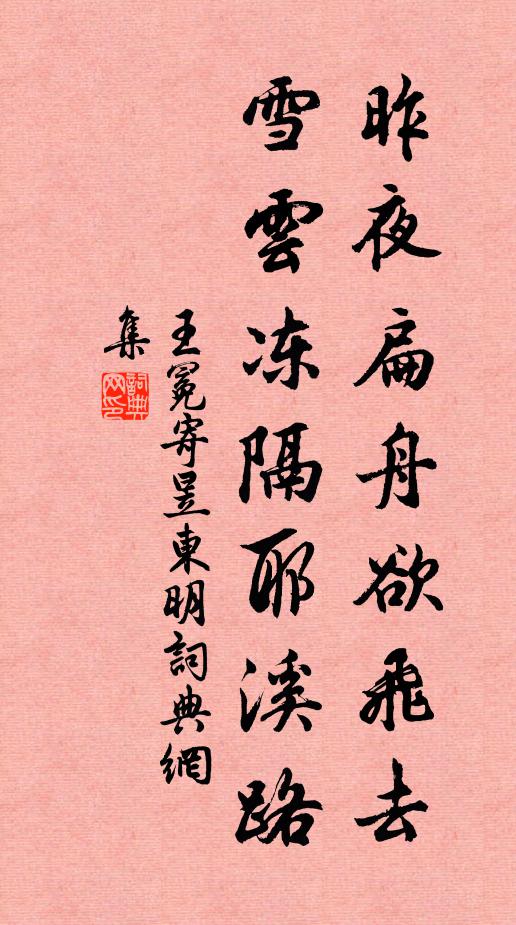 昨夜扁舟欲飛去
雪雲冻隔耶溪路
王冕寄昰東明詞典網
集
詞典网印